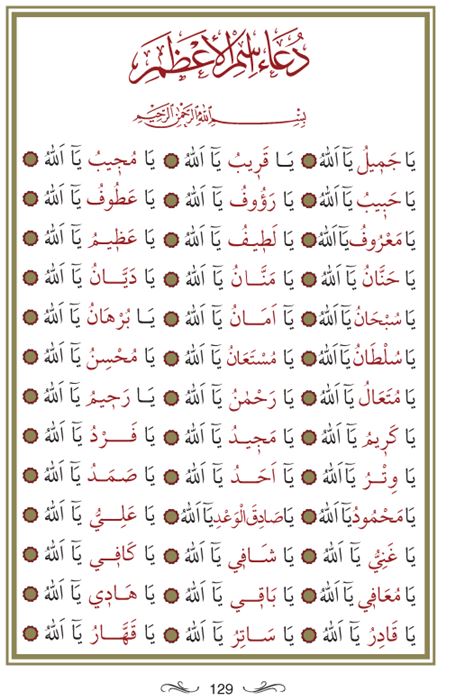 دُعَاءِ اِسْمِ الْاَعْظَمِ
بِسْمِ اللهِ الرَّحْمٰنِ الرَّحِيْمِ
يَا جَمٖيلُ يَٓا اَللهُ يَا قَرٖيبُ يَٓا اَللهُ يَا مُجٖيبُ يَٓا اَللهُ
يَا حَبٖيبُ يَٓا اَللهُ يَا رَؤُوفُ يَٓا اَللهُ يَا عَطُوفُ يَٓا اَللهُ
يَا مَعْرُوفُ يَٓا اَللهُ يَا لَطٖيفُ يَٓا اَللهُ يَا عَظٖيمُ يَٓا اَللهُ
يَا حَنَّانُ يَٓا اَللهُ يَا مَنَّانُ يَٓا اَللهُ يَا دَيَّانُ يَٓا اَللهُ
يَا سُبْحَانُ يَٓا اَللهُ يَا اَمَانُ يَٓا اَللهُ يَا بُرْهَانُ يَٓا اَللهُ
يَا سُلْطَانُ يَٓا اَللهُ يَا مُسْتَعَانُ يَٓا اَللهُ يَا مُحْسِنُ يَٓا اَللهُ
يَا مُتَعَالُ يَٓا اَللهُ يَا رَحْمٰنُ يَٓا اَللهُ يَا رَحٖيمُ يَٓا اَللهُ
يَا كَرٖيمُ يَٓا اَللهُ يَا مَجٖيدُ يَٓا اَللهُ يَا فَرْدُ يَٓا اَللهُ
يَا وِتْرُ يَٓا اَللهُ يَٓا اَحَدُ يَٓا اَللهُ يَا صَمَدُ يَٓا اَللهُ
يَا مَحْمُودُ يَٓا اَللهُ يَا صَادِقَ الْوَعْدِ يَٓا اَللهُ يَا عَلِيُّ يَٓا اَللهُ
يَا غَنِيُّ يَٓا اَللهُ يَا شَافٖي يَٓا اَللهُ يَا كَافٖي يَٓا اَللهُ
يَا مُعَافٖي يَٓا اَللهُ يَا بَاقٖي يَٓا اَللهُ يَا هَادٖي يَٓا اَللهُ
يَا قَادِرُ يَٓا اَللهُ يَا سَاتِرُ يَٓا اَللهُ يَا قَهَّارُ يَٓا اَللهُ
129